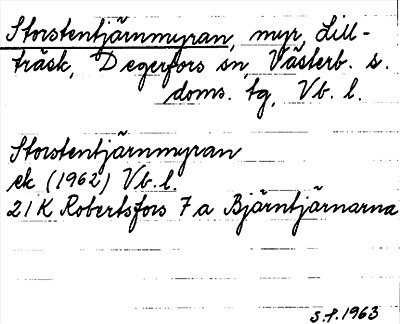 Storstentjärnmyran, myr, Lill-
träsk, Degerfors sn, Västerb. s.
doms. tg, Vb. l.
Storstentjärnmyran
ek (1962) Vb. l.
21K Robertsfors 7a Bjärntjärnarna
s.f. 1963